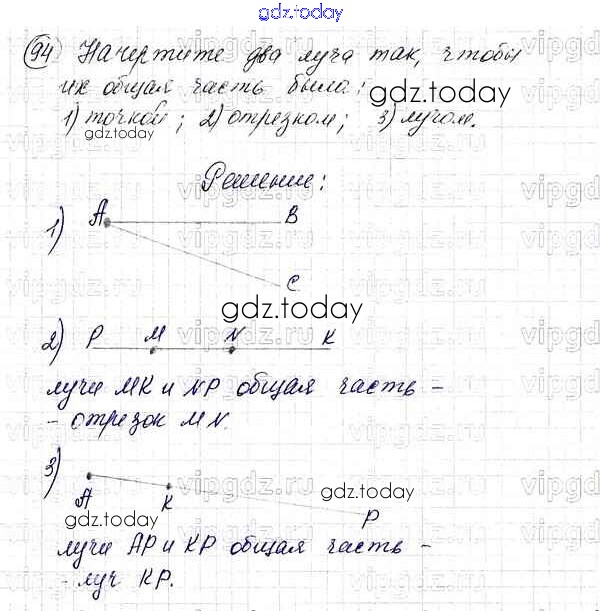 gdz.today
94 Начертите два луча так, чтобы
их общая часть была:
gdz.today
1) точкой; 2) отрезком; 3) лучом.
gdz.today
Решение:
vipgdz.ru
1) A B
C
gdz.today
2) P M N K
лучи MK и NP общая часть -
- отрезок MN.
3) A K P
gdz.today
gdz.today
лучи AP и KP общая часть -
- луч KP.